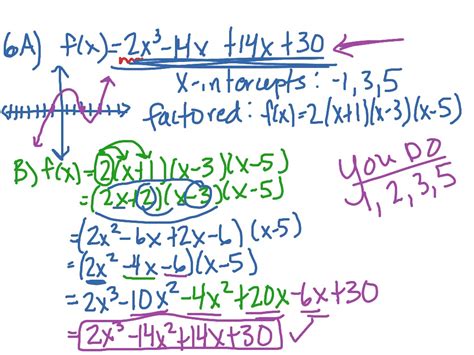 6A) f(x)=2x³-14x +14x+30
x-intercepts: -1, 3, 5
factored: f(x)=2(x+1)(x-3)(x-5)
B) f(x)=2(x+1)(x-3)(x-5)
=(2x+2)(x-3)(x-5)
=(2x²-6x+2x-6)(x-5)
=(2x²-4x-6)(x-5)
=2x³-10x²-4x²+20x-6x+30
=2x³-14x²+14x+30 ✓
YOU DO
1, 2, 3, 5